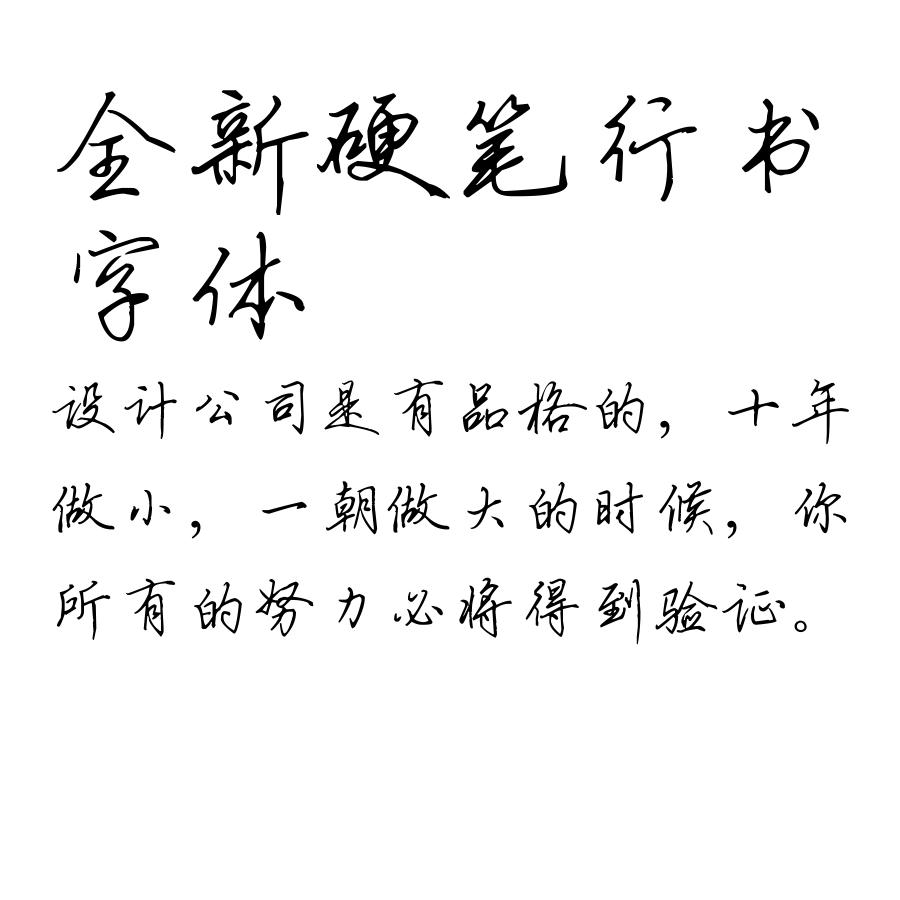 全新硬笔行书
字体
设计公司是有品格的，十年
做小，一朝做大的时候，你
所有的努力必将得到验证。